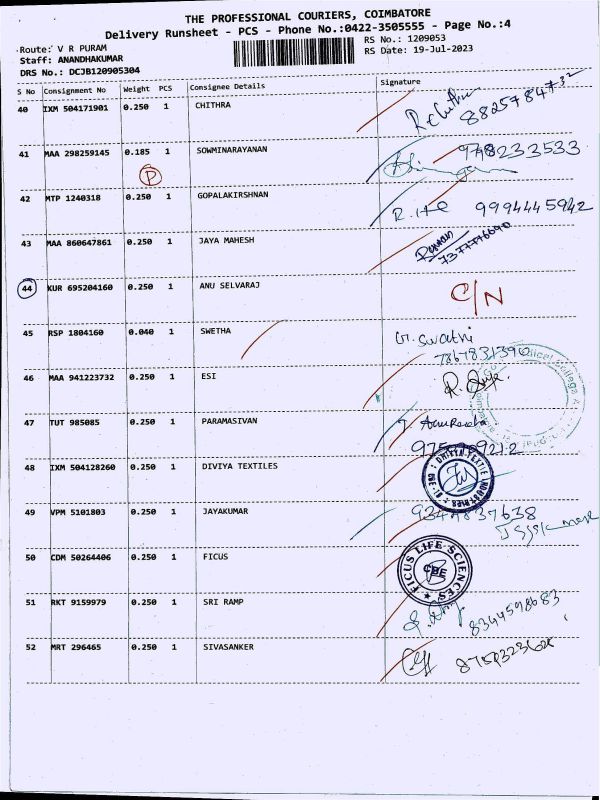 THE PROFESSIONAL COURIERS, COIMBATORE
Delivery Runsheet - PCS - Phone No.:0422-3505555 - Page No.:4
Route: V R PURAM
RS No.: 1209053
Staff: ANANDHAKUMAR
RS Date: 19-Jul-2023
DRS No.: DCJB120905304
S No Consignment No Weight PCS Consignee Details Signature
40 IXM 504171901 0.250 1 CHITHRA
8825784732
41 MAA 298259145 0.185 1 SOWMINARAYANAN
P
42 MTP 1240318 0.250 1 GOPALAKIRSHNAN 9994445942
43 MAA 860647861 0.250 1 JAYA MAHESH
44 KUR 695204160 0.250 1 ANU SELVARAJ C/N
45 RSP 1804160 0.040 1 SWETHA
46 MAA 941223732 0.250 1 ESI
47 TUT 985085 0.250 1 PARAMASIVAN
48 IXM 504128260 0.250 1 DIVIYA TEXTILES
49 VPM 5101803 0.250 1 JAYAKUMAR
50 CDM 50264406 0.250 1 FICUS
FICUS LIFE SCIENCES
CBE
51 RKT 9159979 0.250 1 SRI RAMP
8344598683
52 MRT 296465 0.250 1 SIVASANKER